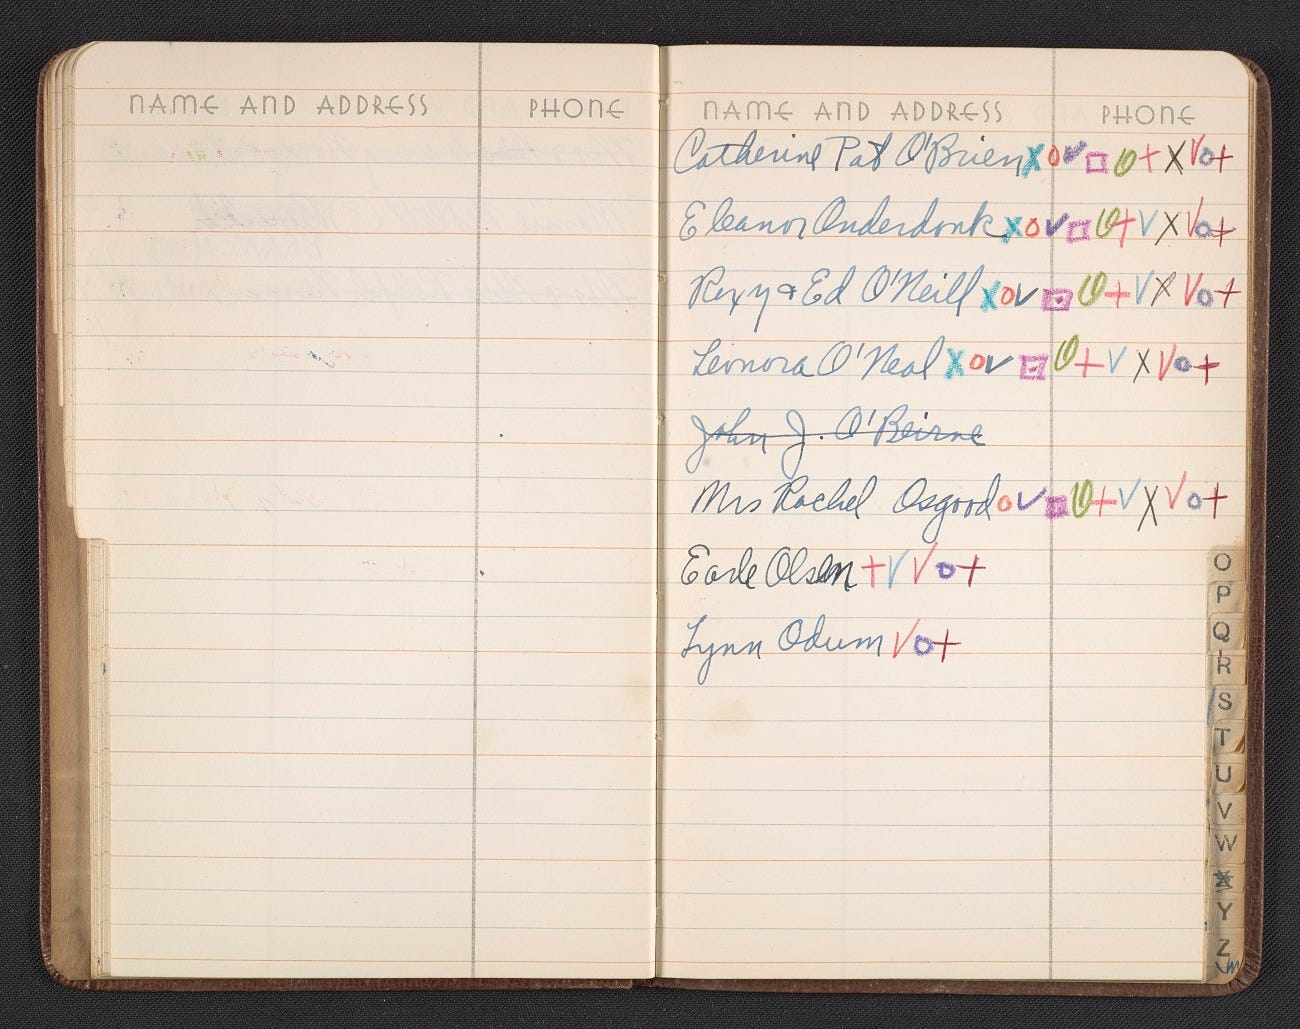 NAME AND ADDRESS PHONE
NAME AND ADDRESS PHONE
Catherine Pat O'Brien X O V □ O + X V O +
Eleanor Onderdonk X O V □ O + V X V O +
Rexy & Ed O'Neill X O V □ O + V X V O +
Leonora O'Neal X O V □ O + V X V O +
John J. O'Beirne
Mrs Rachel Osgood O V □ O + V X V O +
Earle Olsen + V V O +
Lynn Odum V O +
O
P
Q
R
S
T
U
V
W
X
Y
Z